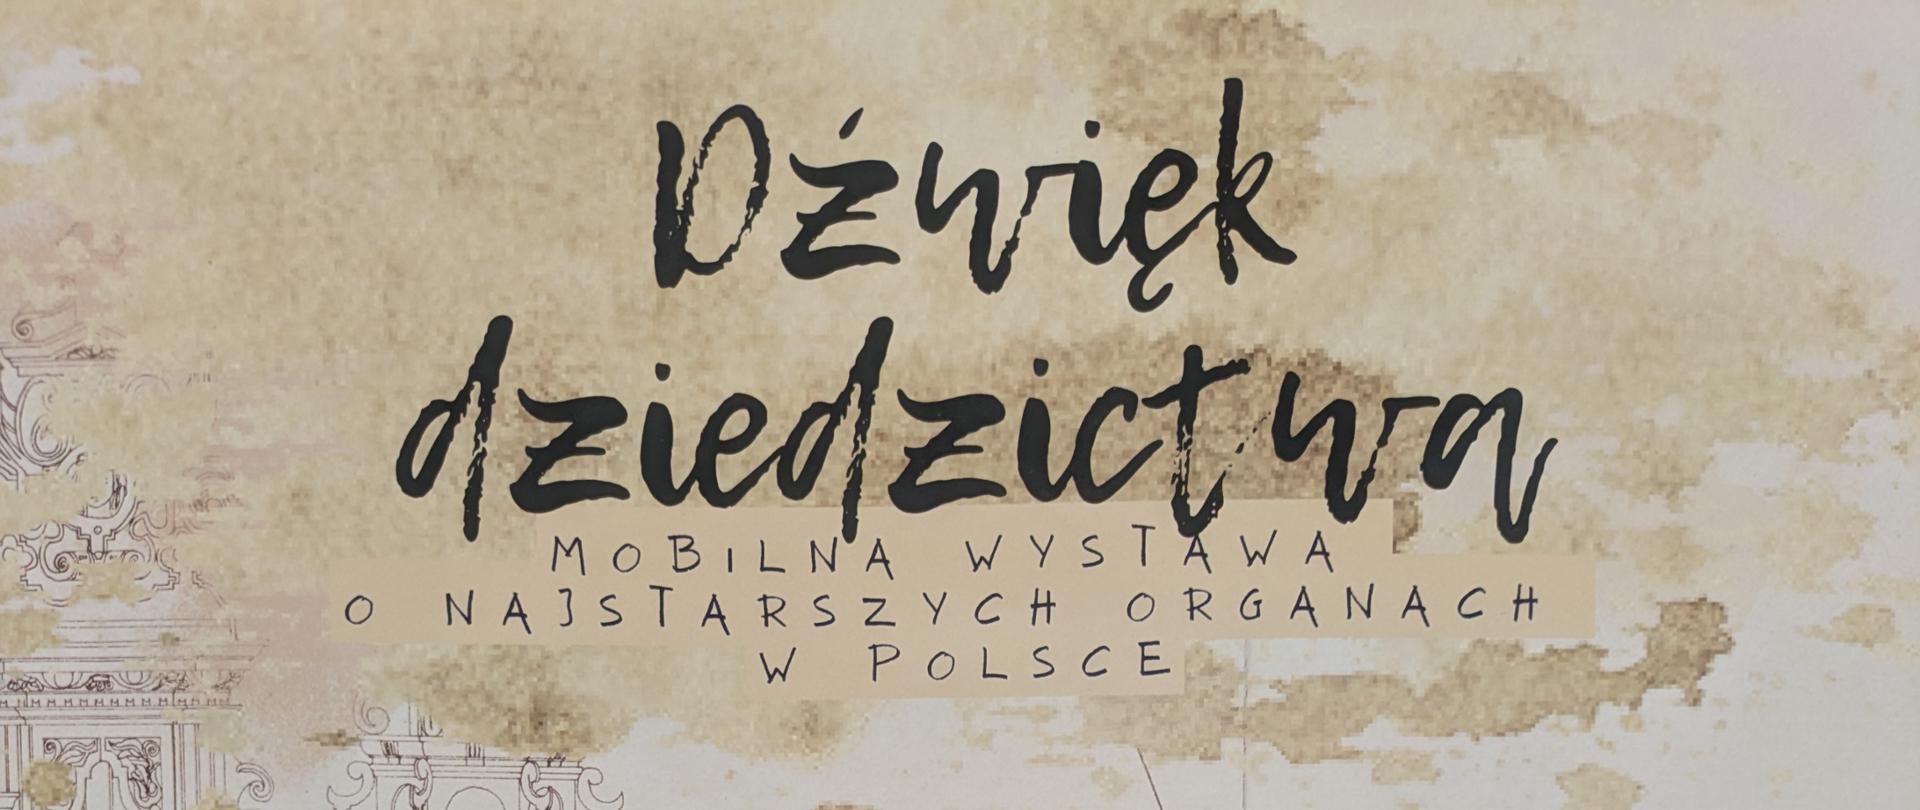 Dźwięk
dziedzictwa
MOBILNA WYSTAWA
O NAJSTARSZYCH ORGANACH
W POLSCE